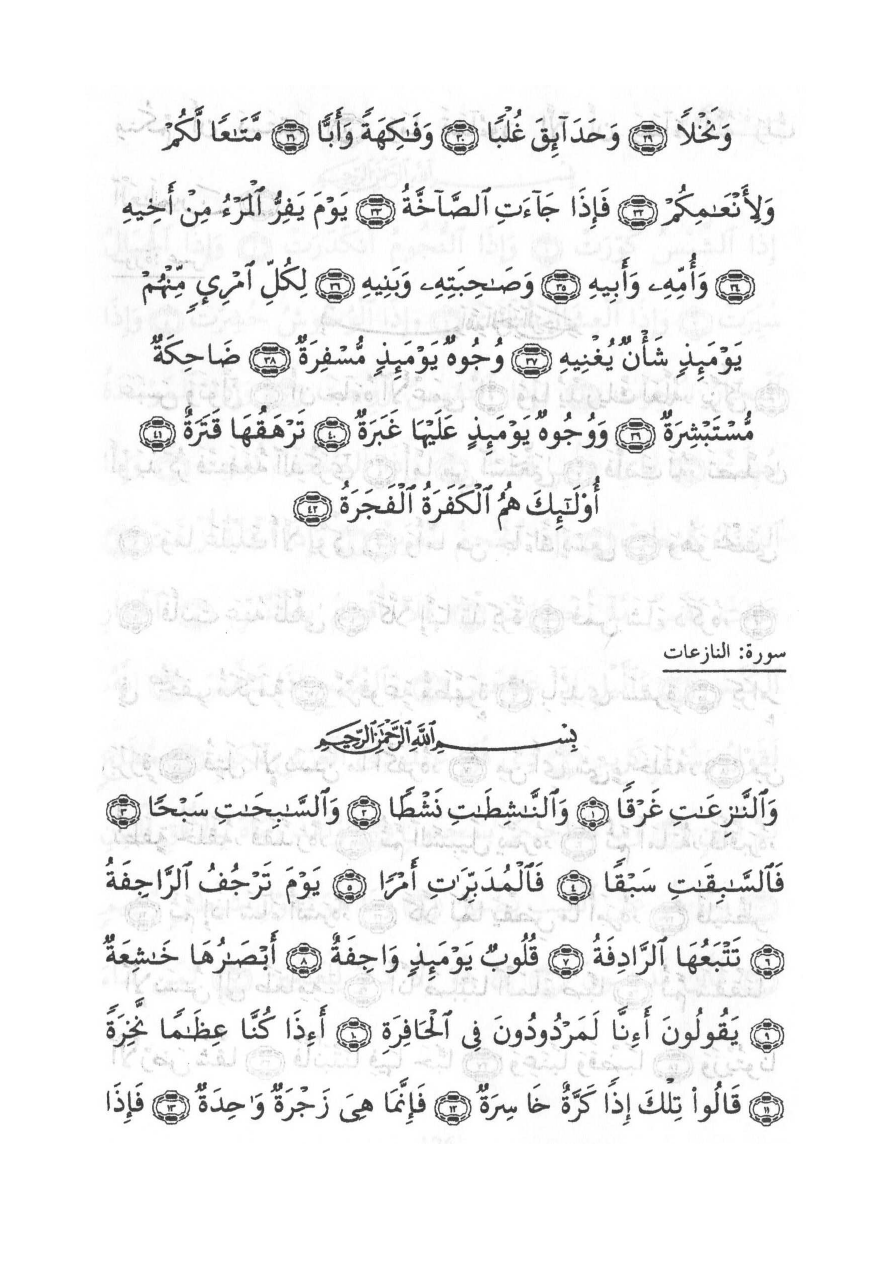 وَنَخْلًا ﴿٢٩﴾ وَحَدَآئِقَ غُلْبًا ﴿٣٠﴾ وَفَـٰكِهَةً وَأَبًّا ﴿٣١﴾ مَّتَـٰعًا لَّكُمْ
وَلِأَنْعَـٰمِكُمْ ﴿٣٢﴾ فَإِذَا جَآءَتِ ٱلصَّآخَّةُ ﴿٣٣﴾ يَوْمَ يَفِرُّ ٱلْمَرْءُ مِنْ أَخِيهِ
﴿٣٤﴾ وَأُمِّهِۦ وَأَبِيهِ ﴿٣٥﴾ وَصَـٰحِبَتِهِۦ وَبَنِيهِ ﴿٣٦﴾ لِكُلِّ ٱمْرِئٍ مِّنْهُمْ
يَوْمَئِذٍ شَأْنٌ يُغْنِيهِ ﴿٣٧﴾ وُجُوهٌ يَوْمَئِذٍ مُّسْفِرَةٌ ﴿٣٨﴾ ضَاحِكَةٌ
مُّسْتَبْشِرَةٌ ﴿٣٩﴾ وَوُجُوهٌ يَوْمَئِذٍ عَلَيْهَا غَبَرَةٌ ﴿٤٠﴾ تَرْهَقُهَا قَتَرَةٌ ﴿٤١﴾
أُو۟لَـٰٓئِكَ هُمُ ٱلْكَفَرَةُ ٱلْفَجَرَةُ ﴿٤٢﴾
سورة: النازعات
بِسْمِ ٱللَّهِ ٱلرَّحْمَـٰنِ ٱلرَّحِيمِ
وَٱلنَّـٰزِعَـٰتِ غَرْقًا ﴿١﴾ وَٱلنَّـٰشِطَـٰتِ نَشْطًا ﴿٢﴾ وَٱلسَّـٰبِحَـٰتِ سَبْحًا ﴿٣﴾
فَٱلسَّـٰبِقَـٰتِ سَبْقًا ﴿٤﴾ فَٱلْمُدَبِّرَٰتِ أَمْرًا ﴿٥﴾ يَوْمَ تَرْجُفُ ٱلرَّاجِفَةُ
﴿٦﴾ تَتْبَعُهَا ٱلرَّادِفَةُ ﴿٧﴾ قُلُوبٌ يَوْمَئِذٍ وَاجِفَةٌ ﴿٨﴾ أَبْصَـٰرُهَا خَـٰشِعَةٌ
﴿٩﴾ يَقُولُونَ أَءِنَّا لَمَرْدُودُونَ فِى ٱلْحَافِرَةِ ﴿١٠﴾ أَءِذَا كُنَّا عِظَـٰمًا نَّخِرَةً
﴿١١﴾ قَالُوا۟ تِلْكَ إِذًا كَرَّةٌ خَاسِرَةٌ ﴿١٢﴾ فَإِنَّمَا هِىَ زَجْرَةٌ وَٰحِدَةٌ ﴿١٣﴾ فَإِذَا